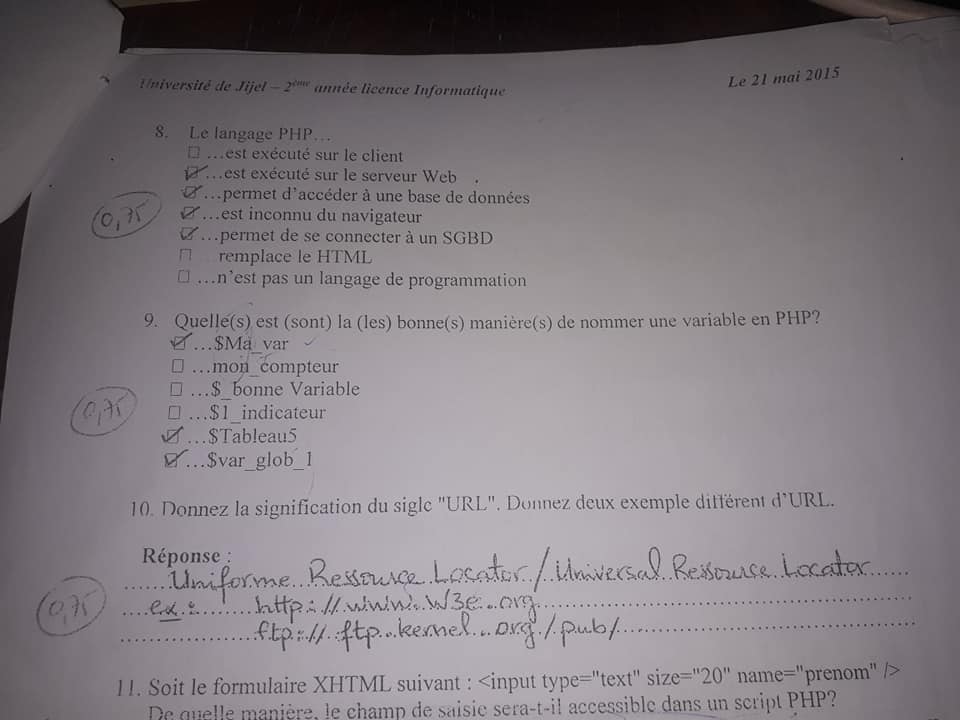 Université de Jijel – 2ème année licence Informatique
Le 21 mai 2015
8. Le langage PHP…
☐ …est exécuté sur le client
☑ …est exécuté sur le serveur Web
☑ …permet d'accéder à une base de données
0,75
☑ …est inconnu du navigateur
☑ …permet de se connecter à un SGBD
☐ remplace le HTML
☐ …n'est pas un langage de programmation
9. Quelle(s) est (sont) la (les) bonne(s) manière(s) de nommer une variable en PHP?
☑ …$Ma_var
☐ …mon_compteur
☐ …$_bonne Variable
0,75
☐ …$1_indicateur
☑ …$Tableau5
☑ …$var_glob_1
10. Donnez la signification du sigle "URL". Donnez deux exemple différent d'URL.
Réponse :
Uniforme Ressource Locator / Universal Ressource Locator
0,75
ex : http://www.w3c.org
ftp://ftp.kernel.org/pub/
11. Soit le formulaire XHTML suivant : <input type="text" size="20" name="prenom" />
De quelle manière, le champ de saisie sera-t-il accessible dans un script PHP?